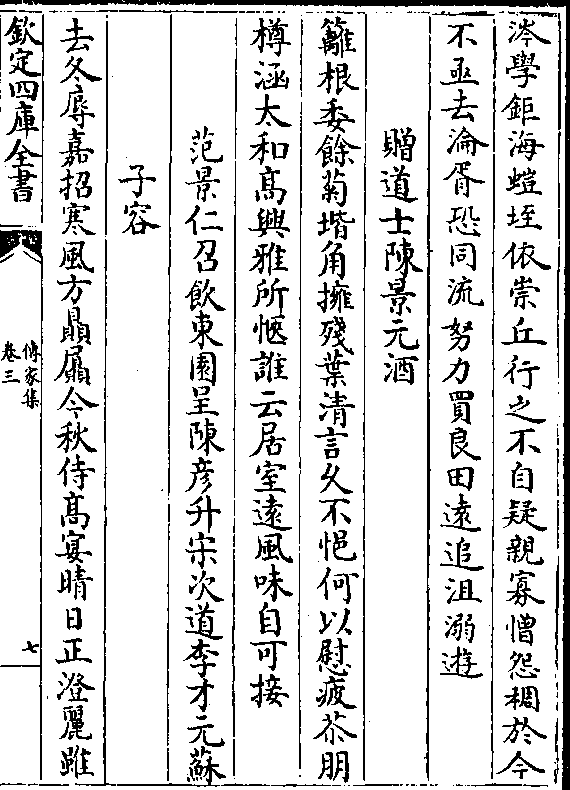 涔學鉅海螘垤依崇丘行之不自疑親寡憎怨稠於今
不亟去淪胥恐同流努力買良田遠追沮溺遊
贈道士陳景元酒
籬根委餘菊堦角擁殘葉清言久不悒何以慰疲苶朋
樽涵太和髙興雅所愜誰云居室遠風味自可接
范景仁召飲東園呈陳彦升宋次道李才元蘇
子容
去冬辱嘉招寒風方贔屭今秋侍髙宴晴日正澄麗雖
欽定四庫全書
傳家集
卷三
七